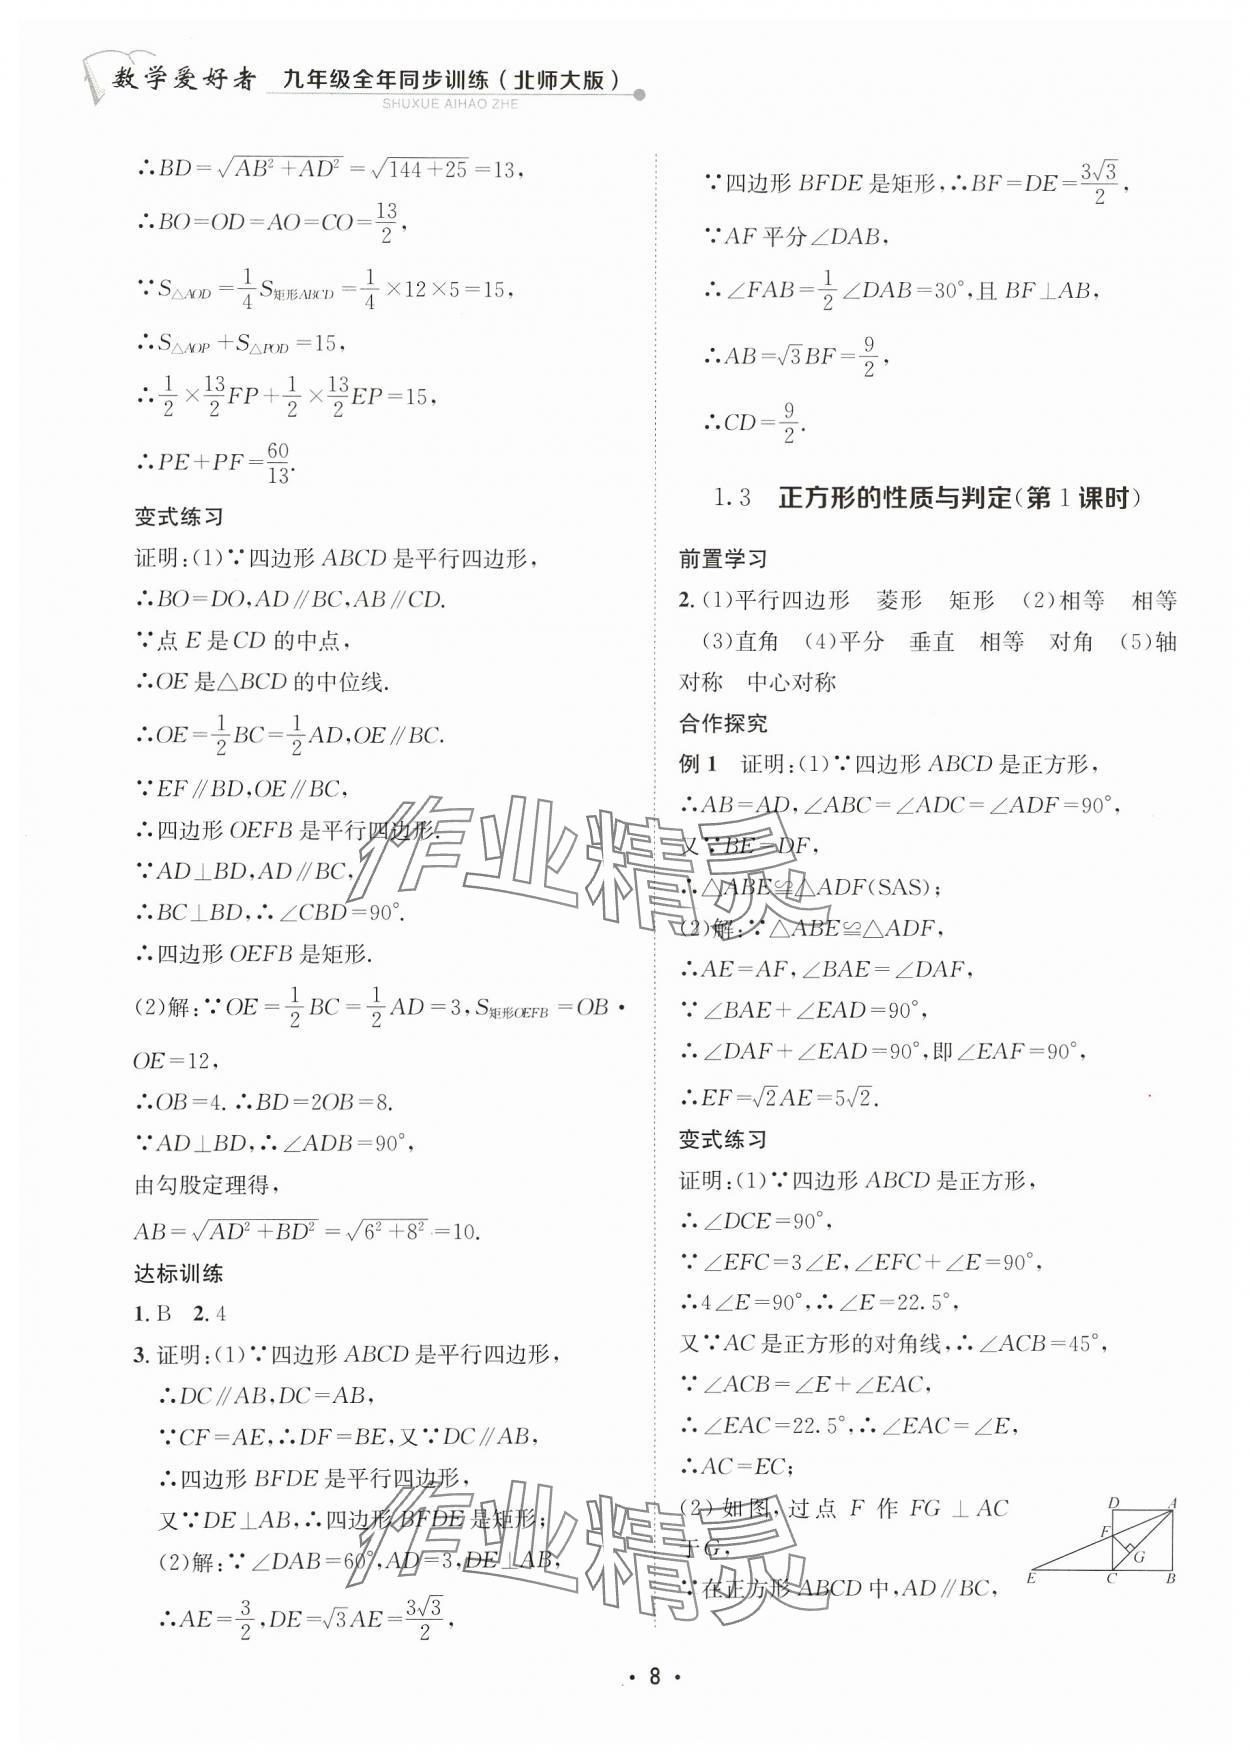 数学爱好者 九年级全年同步训练(北师大版)
SHUXUE AIHAO ZHE
∴BD=√(AB²+AD²)=√(144+25)=13,
∴BO=OD=AO=CO=13/2,
∵S△AOD=1/4S矩形ABCD=1/4×12×5=15,
∴S△AOP+S△POD=15,
∴1/2×13/2FP+1/2×13/2EP=15,
∴PE+PF=60/13.
变式练习
证明:(1)∵四边形ABCD是平行四边形,
∴BO=DO,AD∥BC,AB∥CD.
∵点E是CD的中点,
∴OE是△BCD的中位线.
∴OE=1/2BC=1/2AD,OE∥BC.
∵EF∥BD,OE∥BC,
∴四边形OEFB是平行四边形.
∵AD⊥BD,AD∥BC,
∴BC⊥BD,∴∠CBD=90°.
∴四边形OEFB是矩形.
(2)解:∵OE=1/2BC=1/2AD=3,S矩形OEFB=OB·
OE=12,
∴OB=4.∴BD=2OB=8.
∵AD⊥BD,∴∠ADB=90°,
由勾股定理得,
AB=√(AD²+BD²)=√(6²+8²)=10.
达标训练
1.B 2.4
3.证明:(1)∵四边形ABCD是平行四边形,
∴DC∥AB,DC=AB,
∵CF=AE,∴DF=BE,又∵DC∥AB,
∴四边形BFDE是平行四边形,
又∵DE⊥AB,∴四边形BFDE是矩形;
(2)解:∵∠DAB=60°,AD=3,DE⊥AB,
∴AE=3/2,DE=√3AE=3√3/2,
∵四边形BFDE是矩形,∴BF=DE=3√3/2,
∵AF平分∠DAB,
∴∠FAB=1/2∠DAB=30°,且BF⊥AB,
∴AB=√3BF=9/2,
∴CD=9/2.
1.3 正方形的性质与判定(第1课时)
前置学习
2.(1)平行四边形 菱形 矩形 (2)相等 相等
(3)直角 (4)平分 垂直 相等 对角 (5)轴
对称 中心对称
合作探究
例1 证明:(1)∵四边形ABCD是正方形,
∴AB=AD,∠ABC=∠ADC=∠ADF=90°,
又∵BE=DF,
∴△ABE≌△ADF(SAS);
(2)解:∵△ABE≌△ADF,
∴AE=AF,∠BAE=∠DAF,
∵∠BAE+∠EAD=90°,
∴∠DAF+∠EAD=90°,即∠EAF=90°,
∴EF=√2AE=5√2.
变式练习
证明:(1)∵四边形ABCD是正方形,
∴∠DCE=90°,
∵∠EFC=3∠E,∠EFC+∠E=90°,
∴4∠E=90°,∴∠E=22.5°,
又∵AC是正方形的对角线,∴∠ACB=45°,
∵∠ACB=∠E+∠EAC,
∴∠EAC=22.5°,∴∠EAC=∠E,
∴AC=EC;
(2)如图,过点F作FG⊥AC
于G,
∵在正方形ABCD中,AD∥BC,
D A
F
G
E C B
作业精灵
作业精灵
·8·